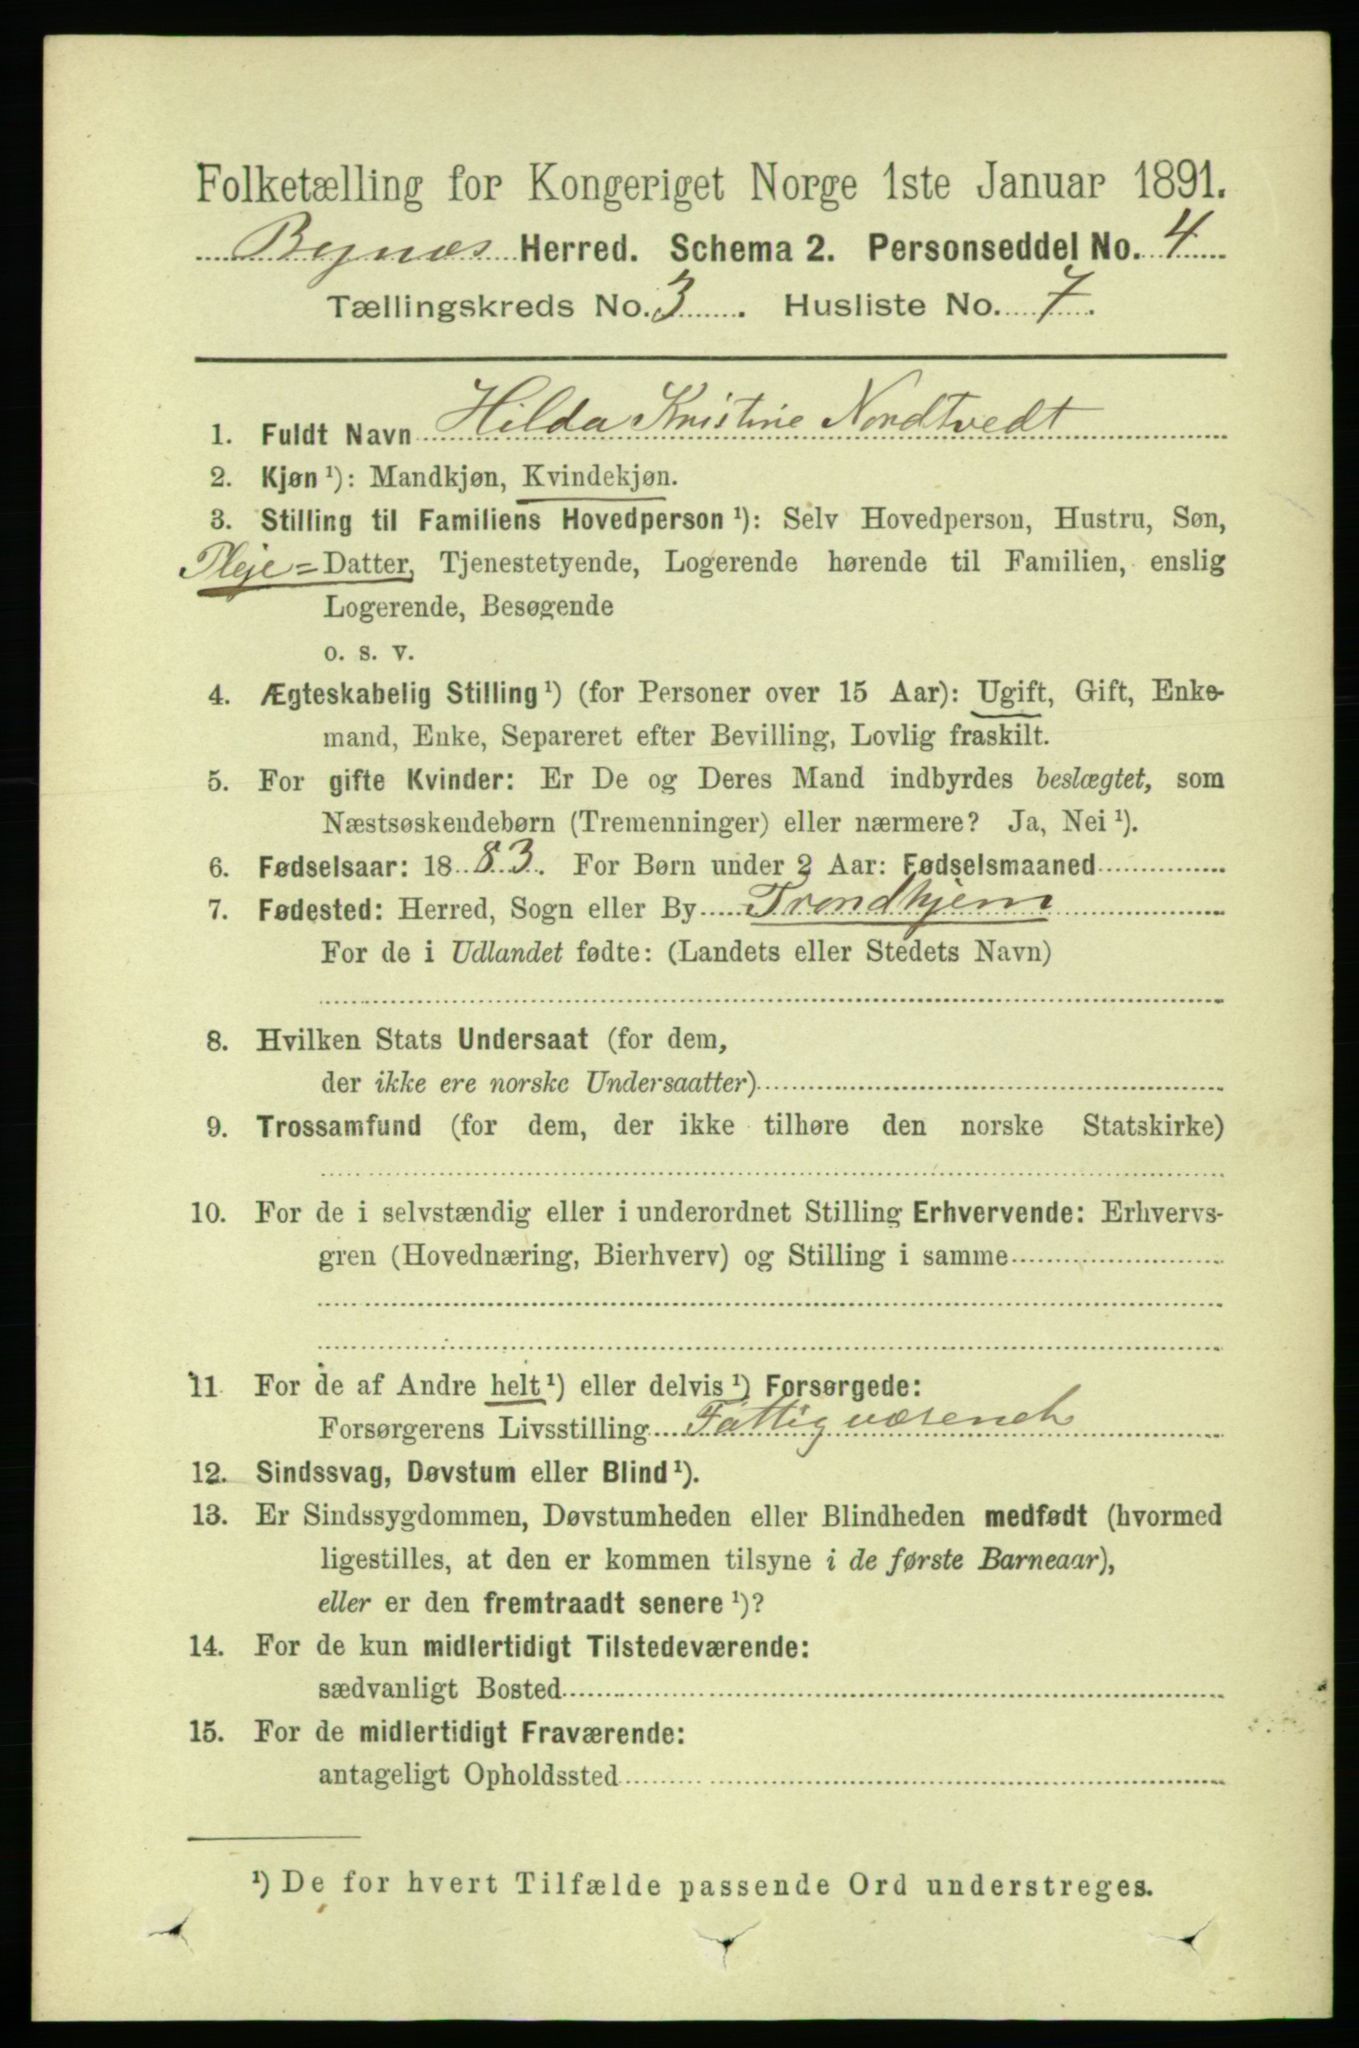 Folketælling for Kongeriget Norge 1ste Januar 1891.
Bynæs Herred. Schema 2. Personseddel No. 4
Tællingskreds No. 3. Husliste No. 7.
1. Fuldt Navn Hilda Kristine Nordtvedt
2. Kjøn ¹): Mandkjøn, Kvindekjøn.
3. Stilling til Familiens Hovedperson ¹): Selv Hovedperson, Hustru, Søn,
Pleje=Datter, Tjenestetyende, Logerende hørende til Familien, enslig
Logerende, Besøgende
o. s. v.
4. Ægteskabelig Stilling ¹) (for Personer over 15 Aar): Ugift, Gift, Enke-
mand, Enke, Separeret efter Bevilling, Lovlig fraskilt.
5. For gifte Kvinder: Er De og Deres Mand indbyrdes beslægtet, som
Næstsøskendebørn (Tremenninger) eller nærmere? Ja, Nei ¹).
6. Fødselsaar: 1883. For Børn under 2 Aar: Fødselsmaaned
7. Fødested: Herred, Sogn eller By Trondhjem
For de i Udlandet fødte: (Landets eller Stedets Navn)
8. Hvilken Stats Undersaat (for dem,
der ikke ere norske Undersaatter)
9. Trossamfund (for dem, der ikke tilhøre den norske Statskirke)
10. For de i selvstændig eller i underordnet Stilling Erhvervende: Erhvervs-
gren (Hovednæring, Bierhverv) og Stilling i samme
11 For de af Andre helt ¹) eller delvis ¹) Forsørgede:
Forsørgerens Livsstilling Fattigvæsenet
12. Sindssvag, Døvstum eller Blind ¹).
13. Er Sindssygdommen, Døvstumheden eller Blindheden medfødt (hvormed
ligestilles, at den er kommen tilsyne i de første Barneaar),
eller er den fremtraadt senere ¹)?
14. For de kun midlertidigt Tilstedeværende:
sædvanligt Bosted
15. For de midlertidigt Fraværende:
antageligt Opholdssted
¹) De for hvert Tilfælde passende Ord understreges.